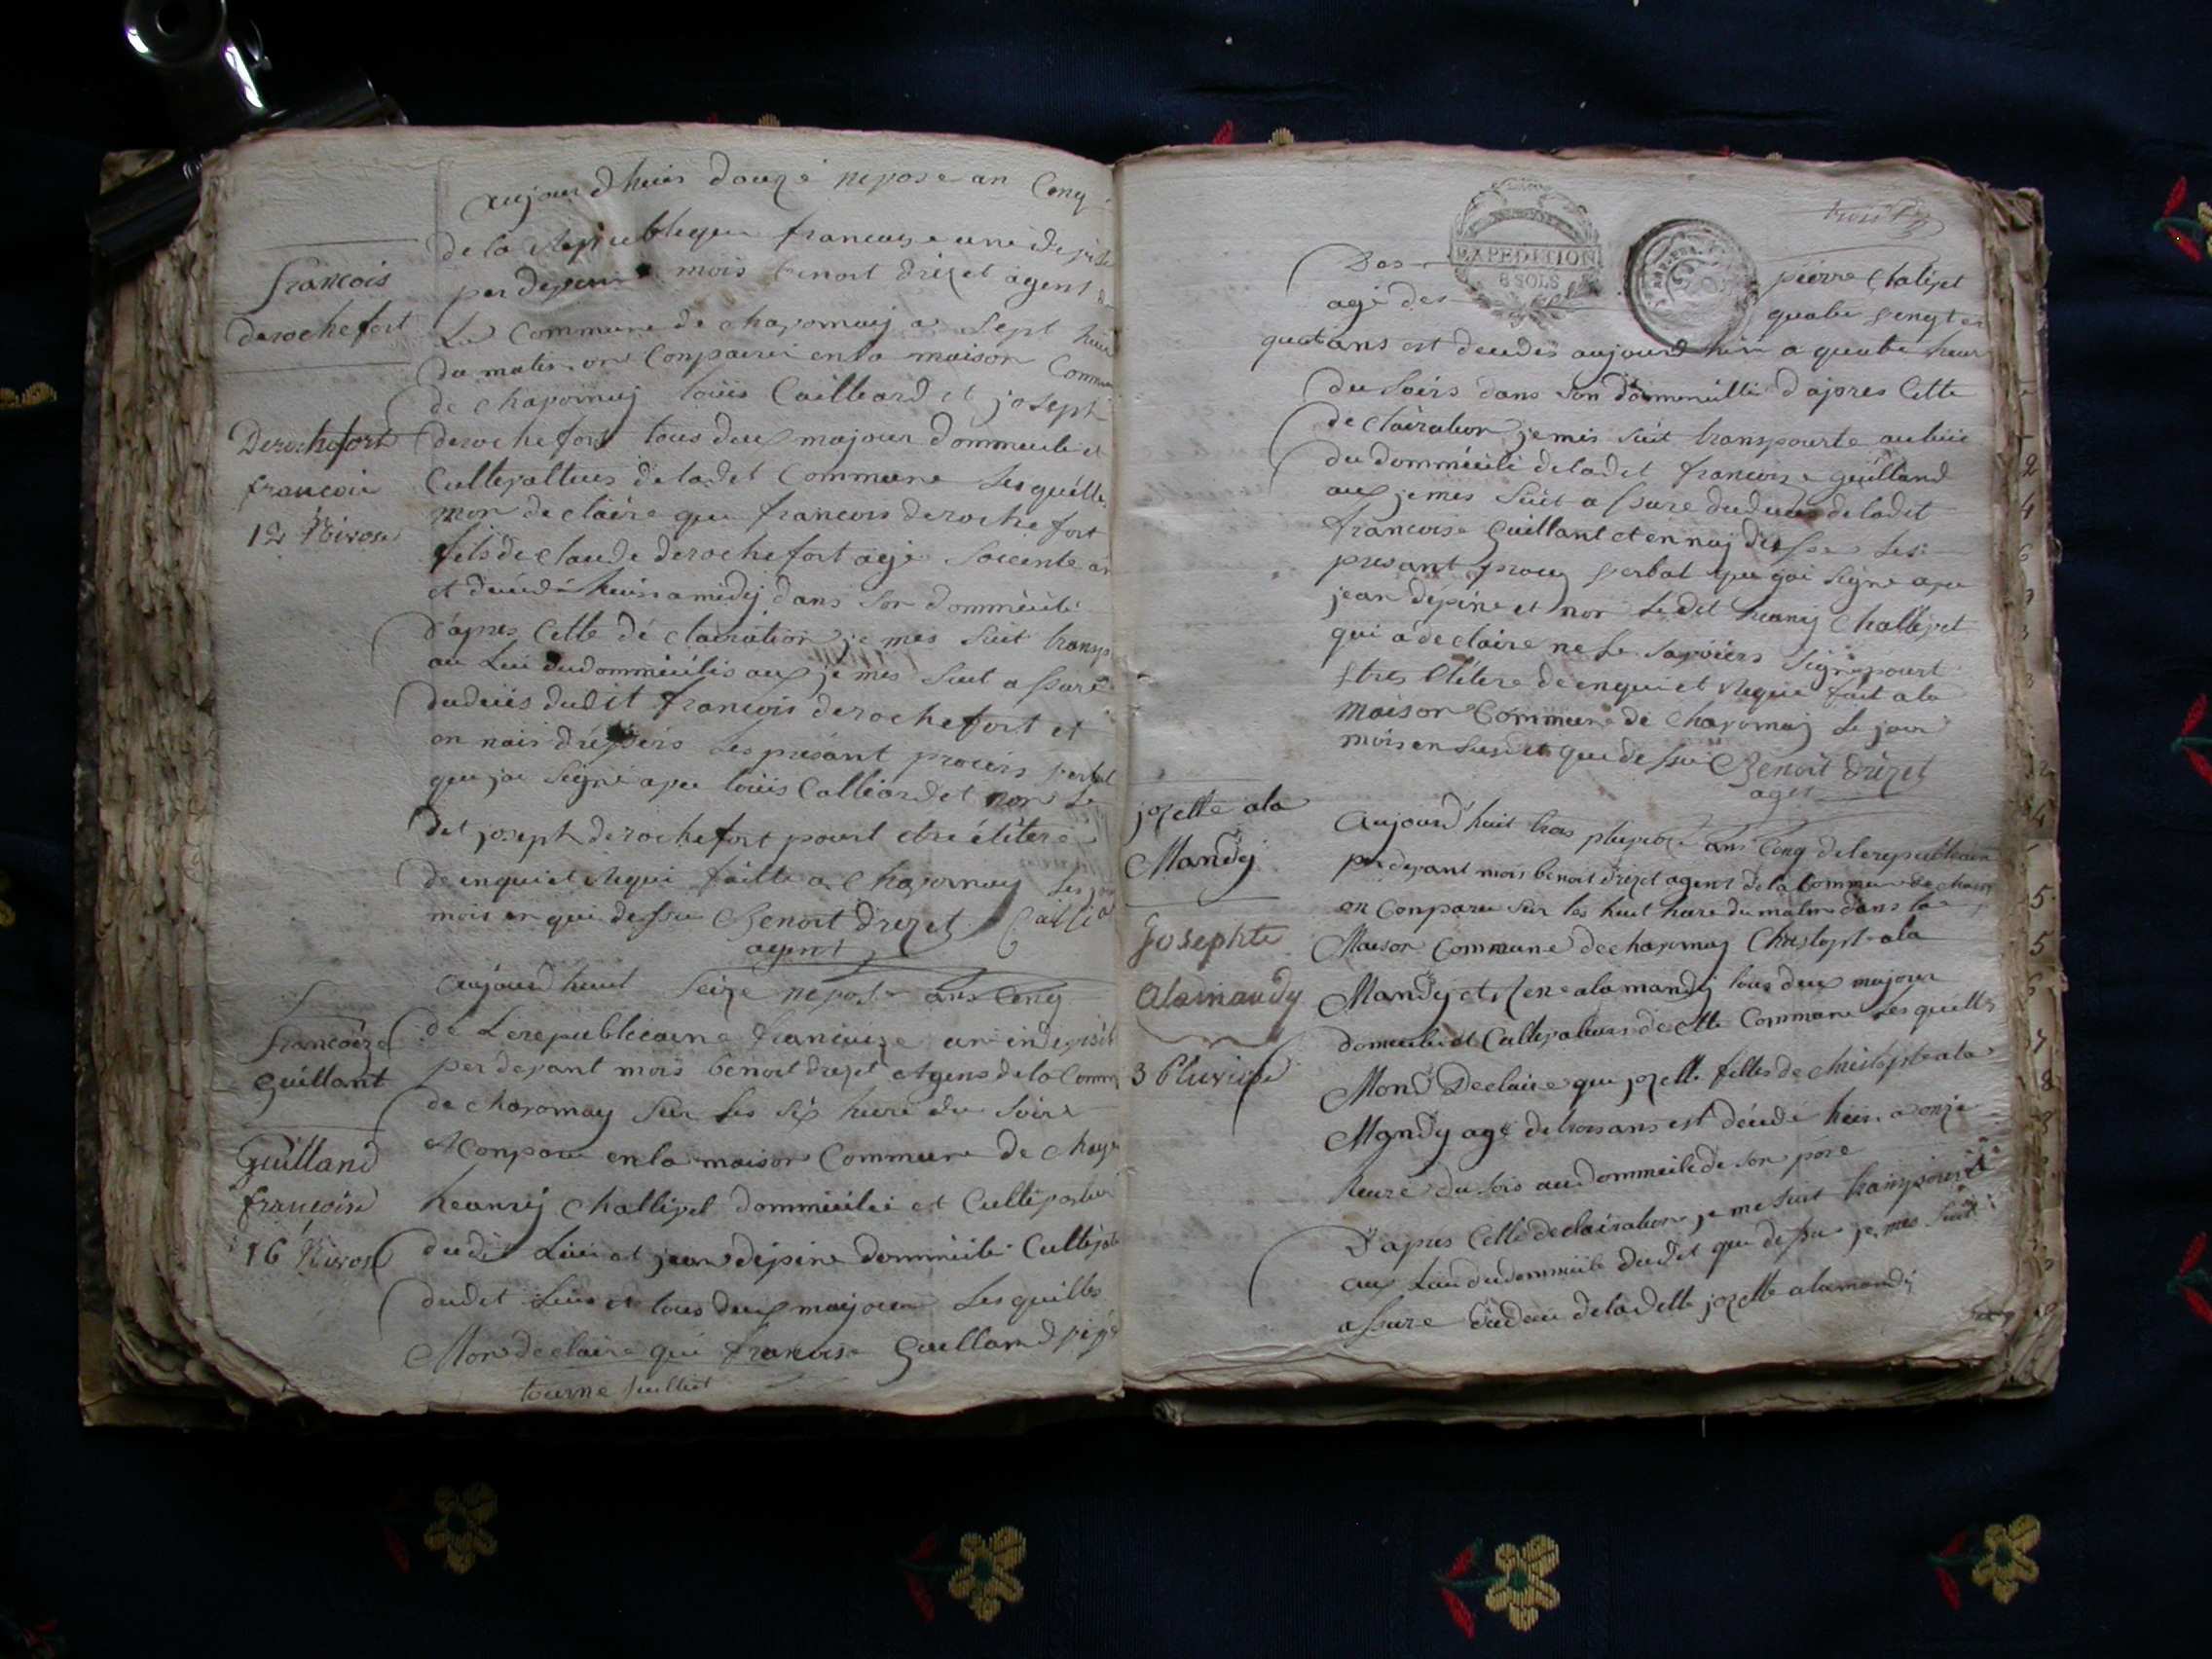 françois
derochefort
Derochefort
françois
12 Nivose
aujour dhuis douze nepose an Cenq
de la Republeque francaise une
per depen mois benoit drezet agent
La Commune de chaponnay a sept heur
du matin on Conparu en la maison Commu
de chaponnay loüis Cailliard et joseph
derochefort tous deux majour dommeulie et
Culteyalteurs de ladet Commune Lesquelle
mon declaire que francois derochefort
fils de claude derochefort age soicente an
et deudé heur a medy dans son dommeuili
d'apres Cette dé claration je mes suit transp
au Lui du dommieulis aux je mes suit assuré
dudeüs dudit francois derochefort et
on nais dréssers Les présant procers verbal
que jai signé apee loüis Calliard et non Le
det joseph derochefort pourt etre élétere
de enqui et requi faitte a Chaponnay Les jou
mois en qui dessu Benoit Drezet Caillia
agent
francoize
guillant
guilland
françoise
16 Nivose
aujourd huit seize nepose ans Cenq
de Lerepubliceaine francaise un indevisib
per devant mois benoit drezet Agens de la Comm
de chaponnay sur les six heure du soire
a Conparu en la maison Commune de chap
heanrij challivet dommieulié et Culteyvateur
dudit Lieu et jean depine dommieuli Cultejat
dudet Lieu et tous deux majour Lesquelles
Mon declaire qui francoise Guilland
tourne feulliet
EXPEDITION
8 SOLS
Des pierre Chalivet
agé des quatre vengt et
quat ans est deudes aujourd huis a quatre heur
du soirs dans son dommieullié d'apres Cette
declairation je mes suit transpourte au luis
du dommieuili de ladet francoise guilland
aux je mes suit assure dudeus de ladet
francoise Guillant et en naij dresse Les
presant procez verbal que jai signe apee
jean depine et non Ledet heanrij Challivet
qui a declaire ne Le savoiers signe pourt
etres elétere de enqui et requi fait a la
maison Commune de chaponnay Le jour
mois en sus et que dessu Benoit Drezet
agent
jozette ala
Mandy
Josephte
alamandy
3 Pluviose
Aujourd huit trois pluviose ans Cenq de lerepublicaine
per devant mois benoit drezet agent de la Commune de chapo
on Conparu sur les huit heure du matin dans la
Maison Commune de chaponnay Christopt ala
Mandy et Rene alamandy tous deux majour
domieulie et Culteyateurs de cette Commune Lesquells
Mond Declaire que jozette filles de christopte ala
Mandy agé de trois ans est déudé huis a onze
heure du sois au dommieile de son pere
D'apres Cette declairation je me suit transpourté
aux Lieu du dommieile dudet que dessu je mes suit
assure dudeu de la dette jozette alamandy